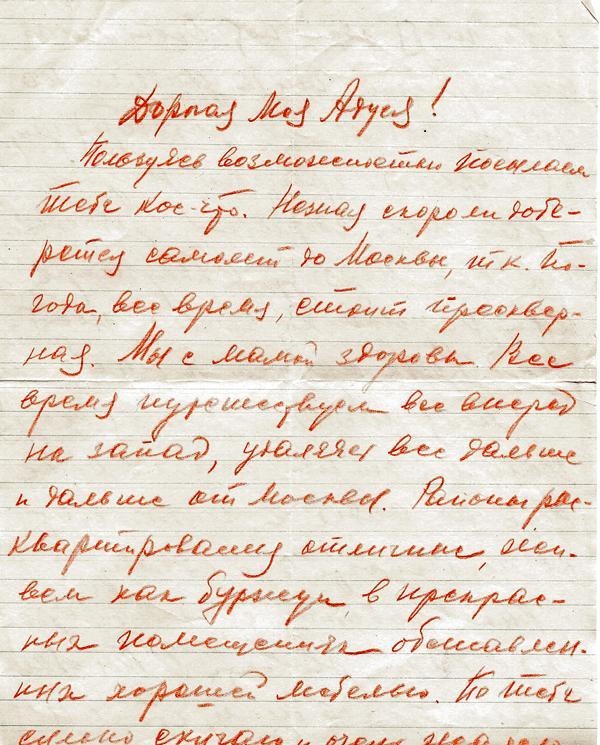 Дорогая Моя Адуся!
Пользуясь возможностью посылаем
тебе кое-что. Незная скоро ли добе-
рется самолет до Москвы, т.к. По-
года, все время, стоит пресквер-
ная. Мы с мамой здоровы. Все
время путешествуем все вперед
на запад, удаляясь все дальше
и дальше от Москвы. Районы рас-
квартирования отличные, жи-
вем как буржуи, в прекрас-
ных помещениях обставлен-
ных хорошей мебелью. По тебе
сильно скучаю и очень